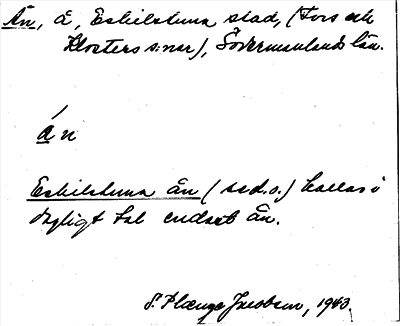 Ån, å, Eskilstuna stad, (Fors och
Klosters s:nar), Södermanlands län.
Án
Eskilstuna ån (sed.o.) kallas i
dagligt tal endast Ån.
S. Plænge Jacobson, 1943.